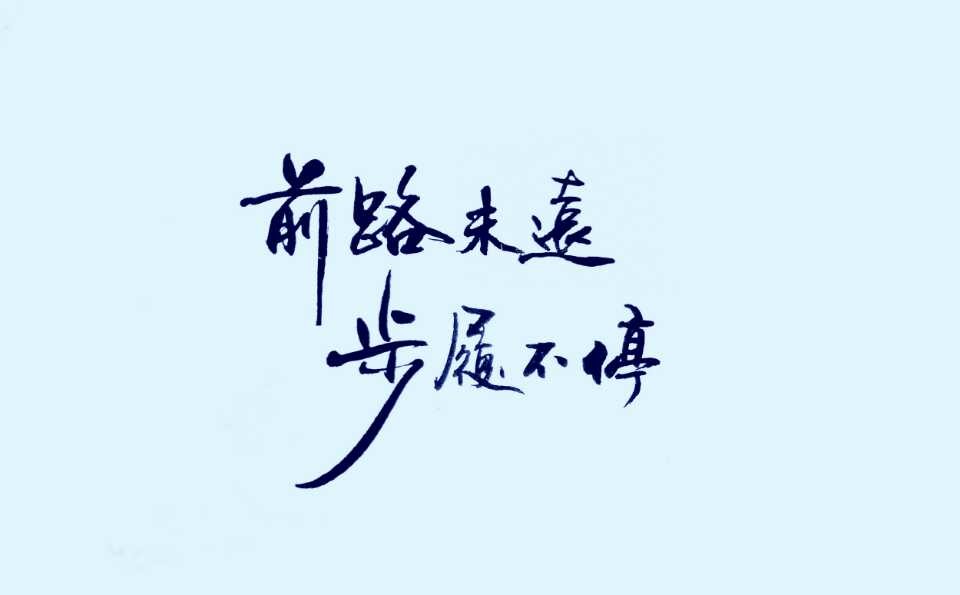 前路未遠
步履不停